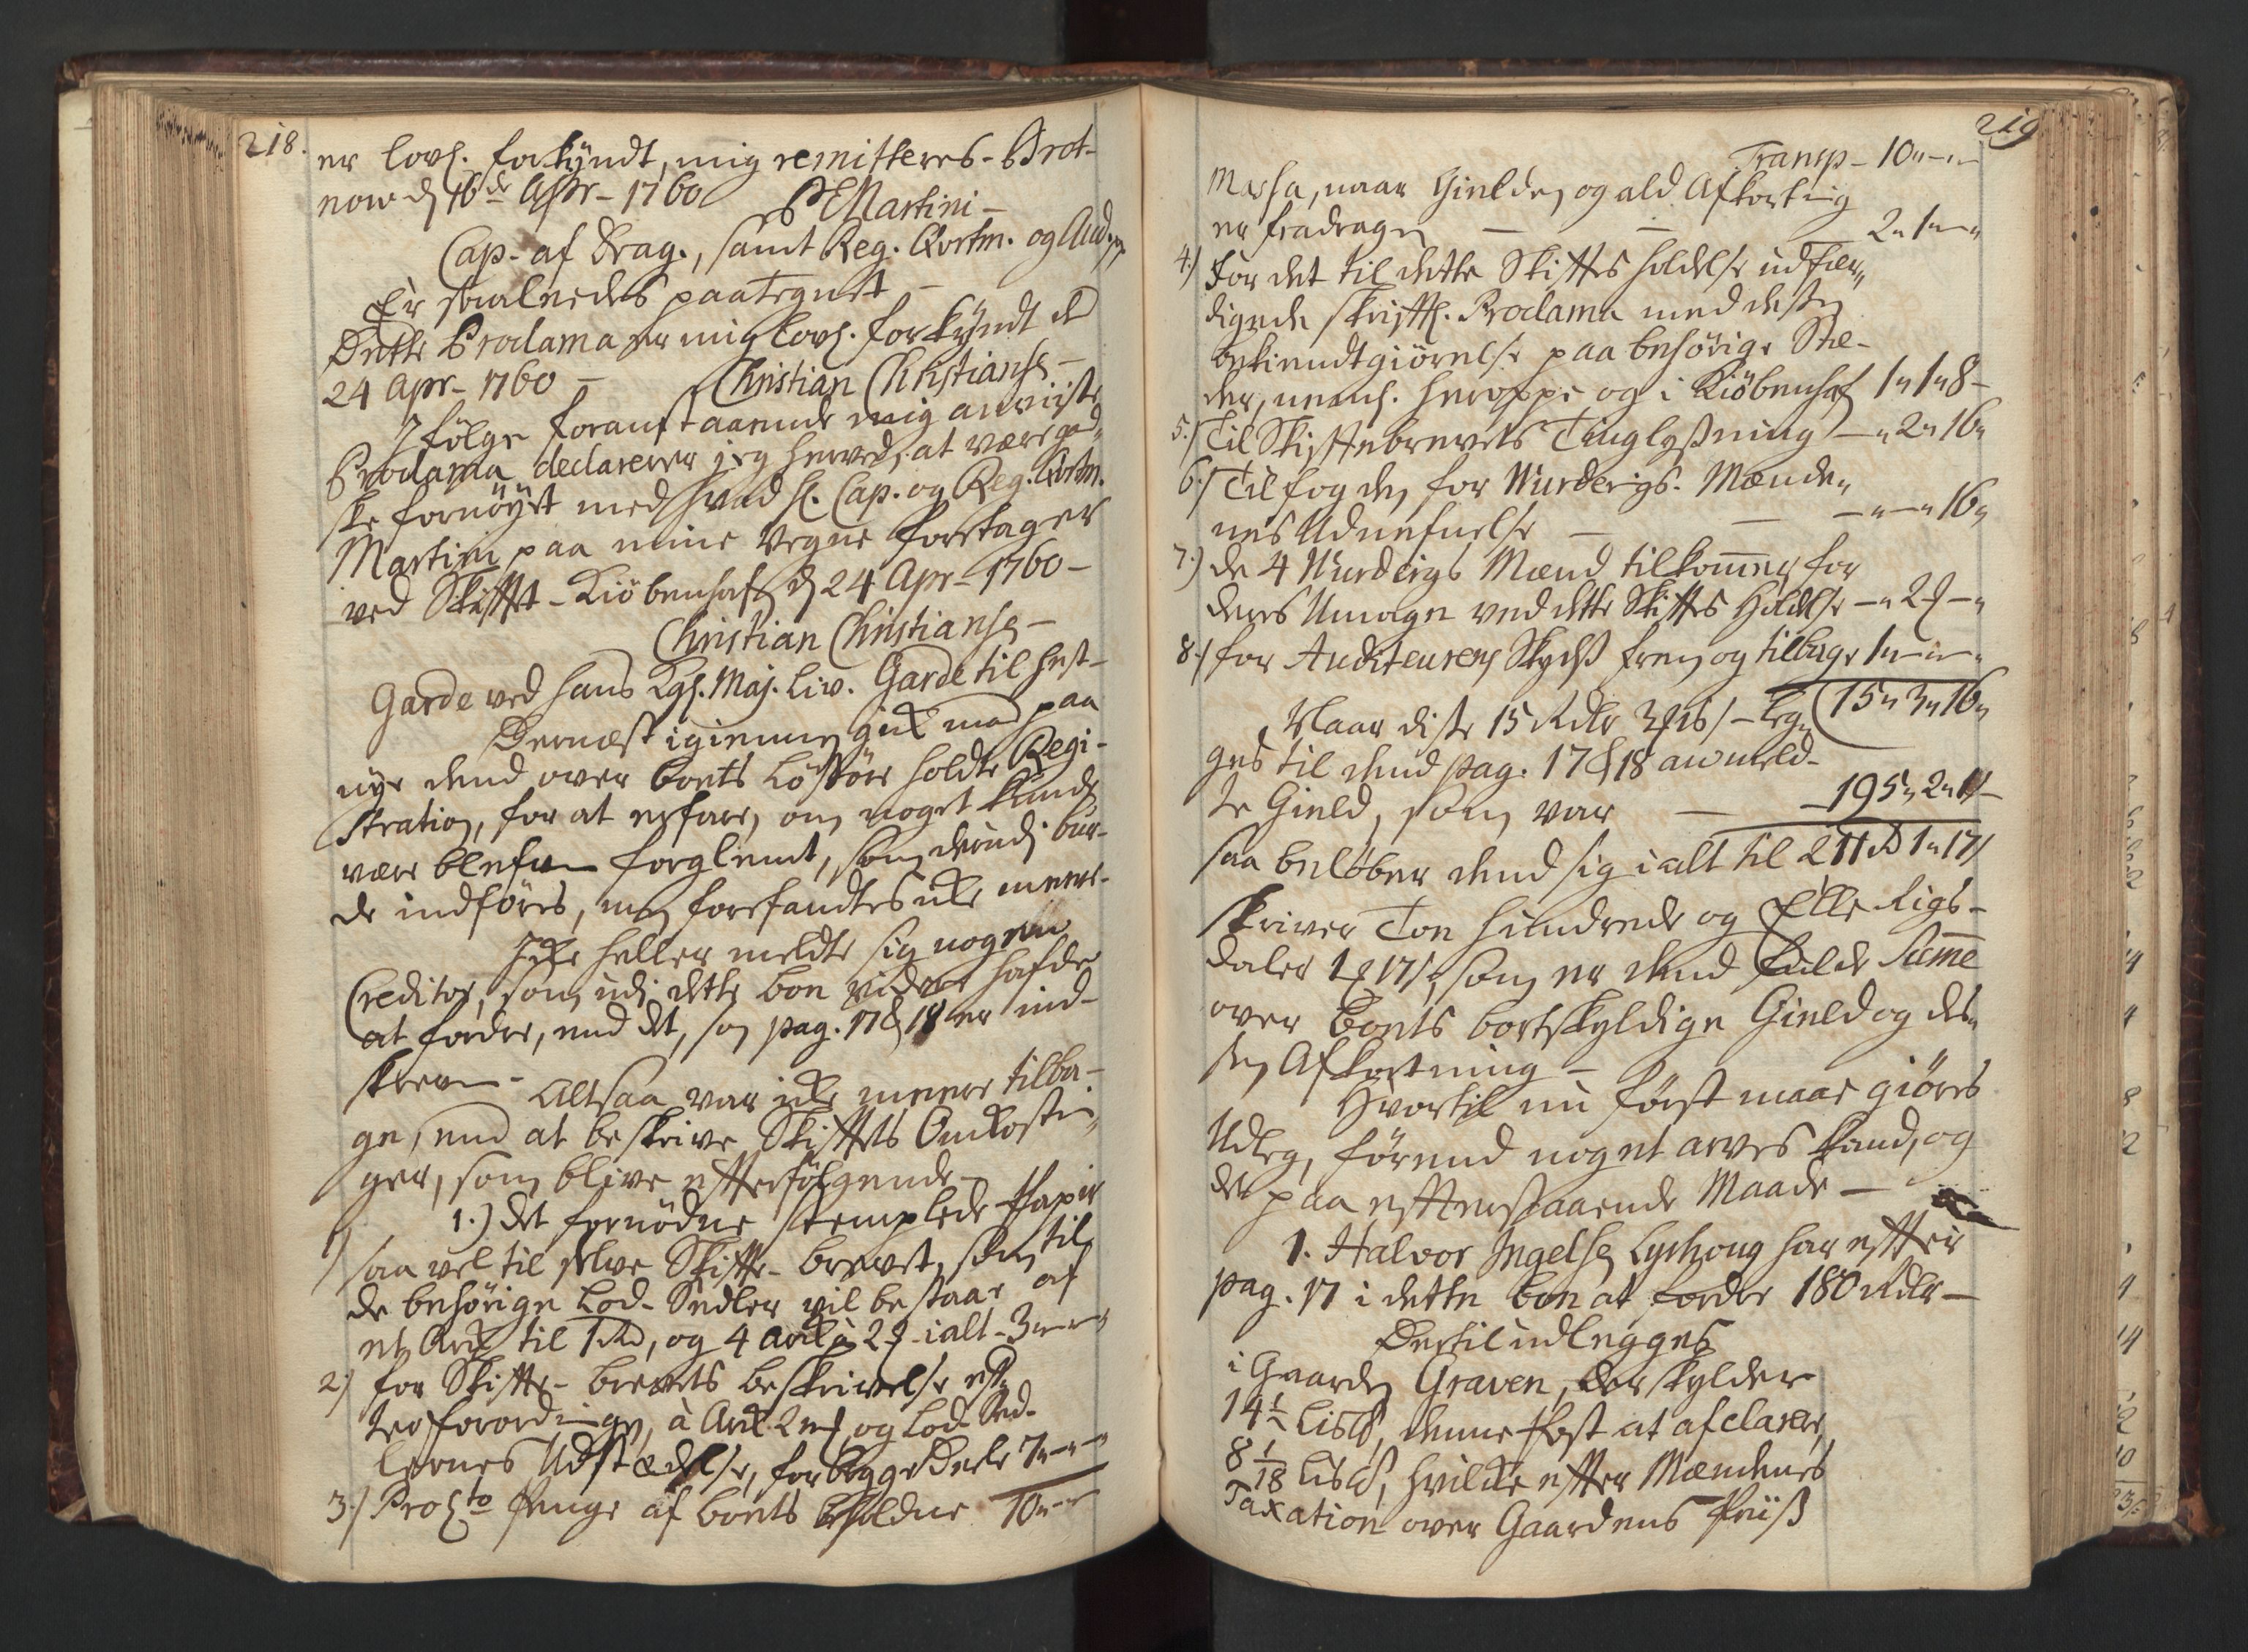 218.
er lovl. forkyndt, mig remitteres - Brot-
now d 16de Apr - 1760 Martini -
Cap. af Drag., samt Reg. Qvartm. og Aud.
Er saaledes paategnet -
Dette Proclama er mig lovl. forkyndt d
24 Apr - 1760 - Christian Christians. -
Ifølge foranstaaende mig anviiste
Proclama declarerer jeg herved, at være gand-
ske fornøyet med hvad H. Cap. og Reg. Qvartm.
Martini paa mine Vegne foretager
ved Skiftet - Kiöbenhafn d 24 Apr - 1760 -
Christian Christians. -
Garde ved Hans Kgl. Maj. Liv. Garde til Hest -
Dernæst igiennem gik mand paa
nye dend over boets Løsøre holdte Regi-
stration, for at erfare, om noget kunde
være blefven forglemt, som derudj bur-
de indføres, men forefandtes icke meere -
Icke heller meldte sig nogen
Creditor, som udi dette boe videre hafde
at fordre, end det, som pag. 17 & 18 er ind-
skreven -
Altsaa var icke meere tilba-
ge, end at beskrive Skiftets Omkostni-
ger, som blive efterfølgende -
1.) det fornødne stemplede Papiir
saa vel til selve Skifte-brevet, som til
de behörige Lod-Sedler vil bestaae af
et Ark til 1 Rd, og 4 Ark à 2 - ialt - 3 " - " -
2.) for Skifte-brevets beskrivelse eft-
ter forordningen, à Ark 2 og Lod-Sed-
lernes Udstædelse, for begge Deele 7 " - " -
3.) Procto Penge af boets beholdne 10 " - " -
219
Transp - 10 " - " -
Massa, naar Gielden og ald Afkorting
er fradragen - - 2 " 1 " - "
4.) For det til dette Skiftes holdelse udfær-
digede skriftl. Proclama med dets
bekiendtgiörelse paa behörige Stæ-
der, nemlig. heroppe og i Kiöbenhafn 1 " 1 " 8 -
5.) Til Skiftebrevets Tinglysning - " 2 " 16 "
6.) Til fogden for Vurderings-Mænde-
nes Udnefnelse - - - " - " 16 "
7.) de 4 Vurderigs Mænd tilkommer for
deres Umage ved dette Skiftes Holdelse - " 2 - "
8.) for Auditeurens Skyds frem og tilbage 1 " - " - "
15 " 3 " 16 "
Naar disse 15 Rdlr 3 16 s - leg-
ges til dend pag. 17 & 18 anmeld-
te Gield, som var - - 195 " 2 " 1 s -
saa beløber dend sig i alt til 211 Rd 1 " 17 s
skriver Toe hundrede og Elle Rigs-
daler 1 17 s, som er dend fulde Summe
over boets bortskyldige Gield og des-
sen Afkortning -
Hvortil nu först maae giöres
Udleg, förend noget arves kand, og
det paa efterstaaende Maade -
1. Halvor Ingelsen Lyshoug har efter
pag. 17 i dette boe at fordre 180 Rdlr -
Dertil udlegges
i Gaarden Graven, der skylder
14½ Lispd, denne Post at afclarere
8 1/18 Lispd, hvilke efter Mændenes
Taxation over Gaardens Priis